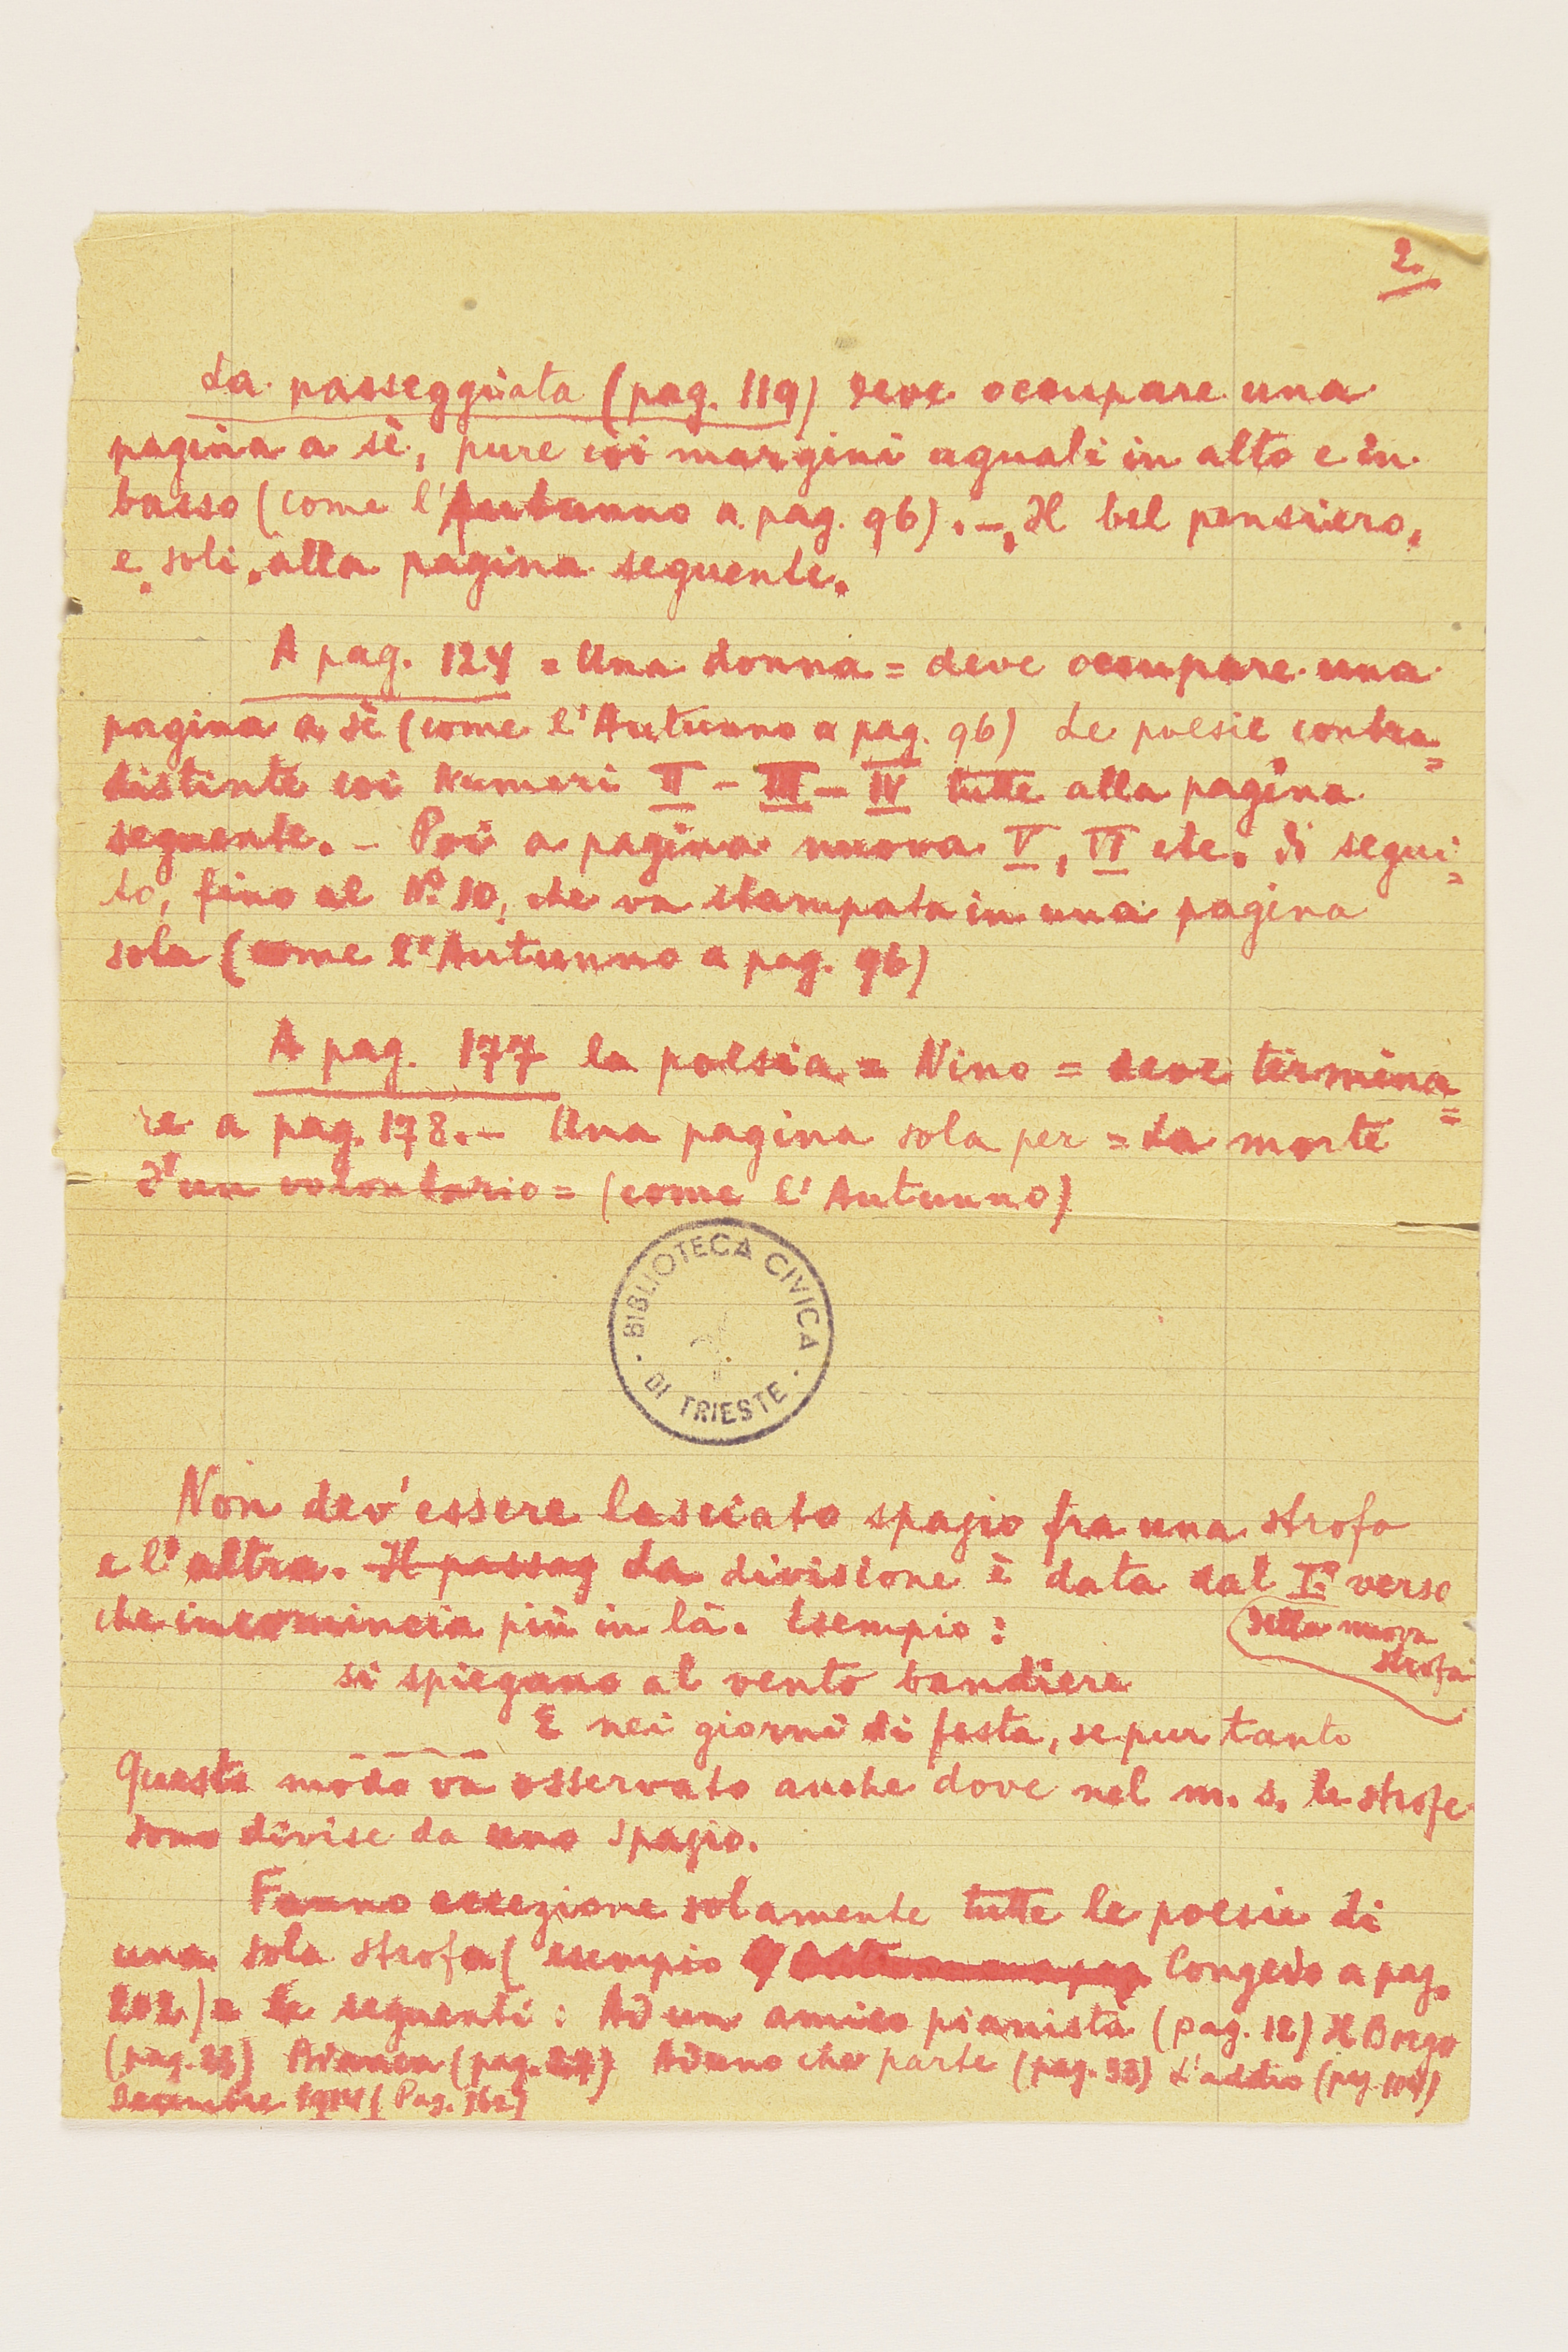 2.
La passeggiata (pag. 119) deve occupare una
pagina a sè, pure coi margini uguali in alto e in
basso (come l'Autunno a pag. 96). -, Il bel pensiero,
e soli, alla pagina seguente.
A pag. 124 = Una donna = deve occupare una
pagina a sè (come l'Autunno a pag. 96) Le poesie contra=
distinte coi Numeri II - III - IV tutte alla pagina
seguente. - Poi a pagina nuova V, VI etc. di segui=
to, fino al N.º 10, che va stampata in una pagina
sola (come l'Autunno a pag. 96)
A pag. 177 la poesia = Nino = deve termina=
re a pag. 178. - Una pagina sola per = La morte
d'un volontario = (come l'Autunno)
BIBLIOTECA CIVICA
DI TRIESTE
Non dev'essere lasciato spazio fra una strofa
e l'altra. Il passag La divisione è data dal Iº verso
della nuova
strofa
che incomincia più in là. Esempio:
si spiegano al vento bandiere
E nei giorni di festa, se pur tanto
Questo modo va osservato anche dove nel m. s. le strofe
sono divise da uno spazio.
Fanno eccezione solamente tutte le poesie di
una sola strofa (esempio Congedo a pag.
202) e le seguenti: Ad un amico pianista (pag. 12) Il Borgo
(pag. 23) (pag. 27) Ad uno che parte (pag. 33) L'addio (pag. 104)
Decembre 1914 (Pag. 162)